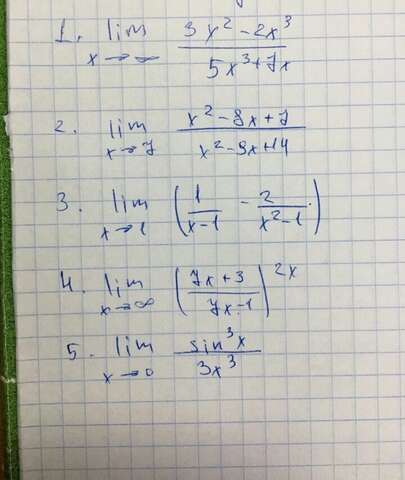 1. lim x→∞ (3x² - 2x³)/(5x³ + 7x)
2. lim x→7 (x² - 8x + 7)/(x² - 9x + 14)
3. lim x→1 (1/(x-1) - 2/(x²-1))
4. lim x→∞ ((7x+3)/(7x-1))^2x
5. lim x→0 sin³x/3x³